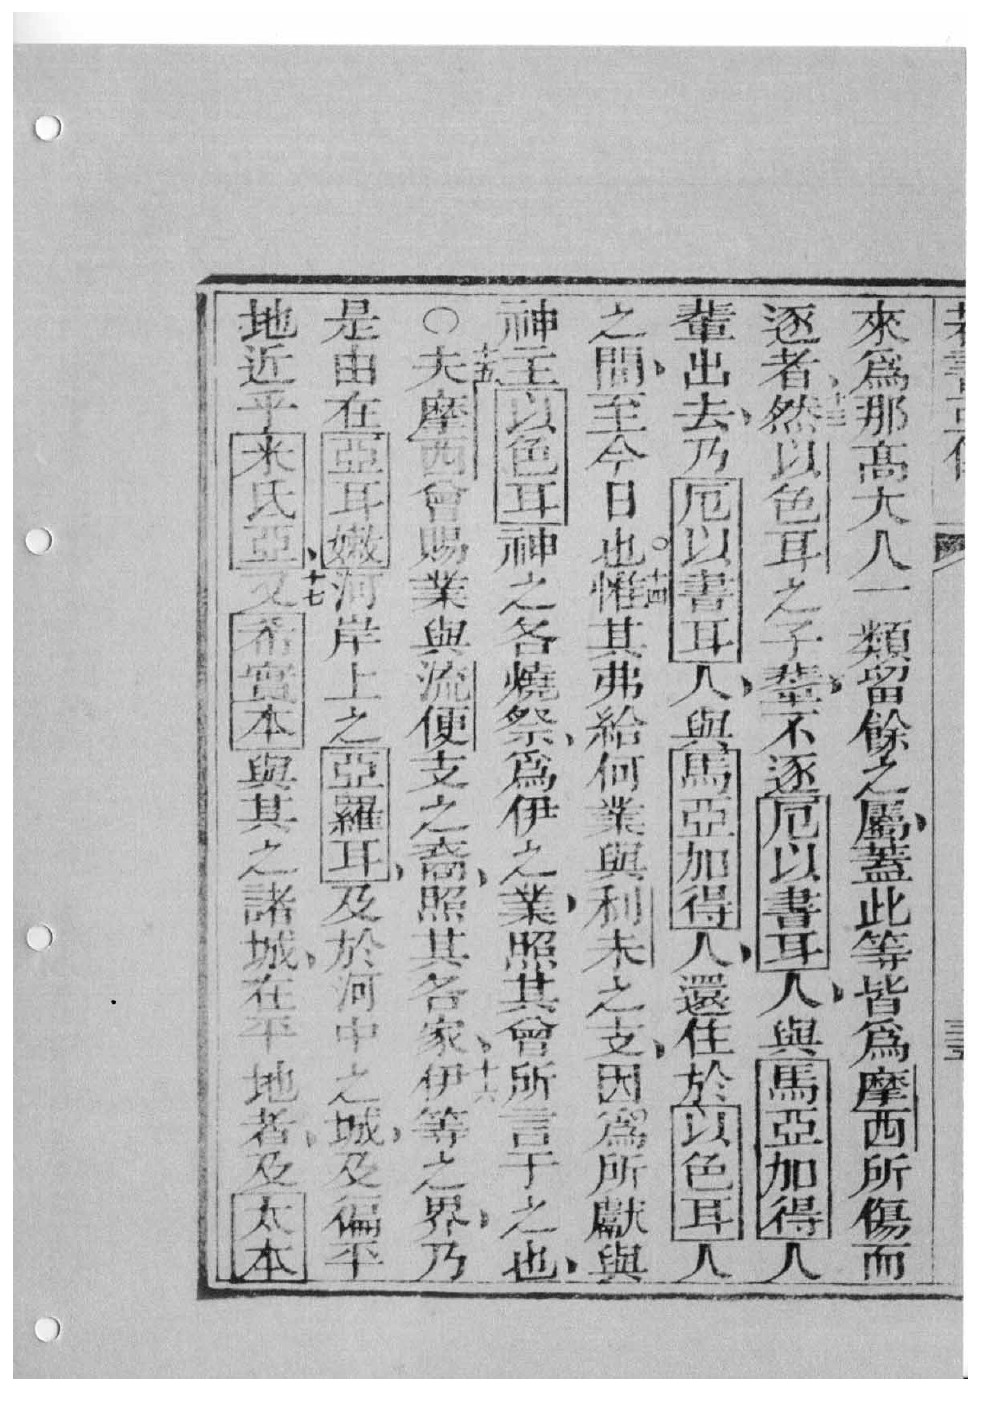 來爲那高大人一類留餘之屬蓋此等皆爲摩西所傷而
逐者十三然以色耳之子輩不逐厄以書耳人與馬亞加得人
輩出去乃厄以書耳人與馬亞加得人還住於以色耳人
之間至今日也。十四惟其弗給何業與利未之支因爲所獻與
神主以色耳神之各燒祭爲伊之業照其曾所言于之也
○十五夫摩西曾賜業與流便支之裔照其各家十六伊等之界乃
是由在亞耳嫩河岸上之亞羅耳及於河中之城及偏平
地近乎米氏亞十七又希實本與其之諸城在平地者及太本